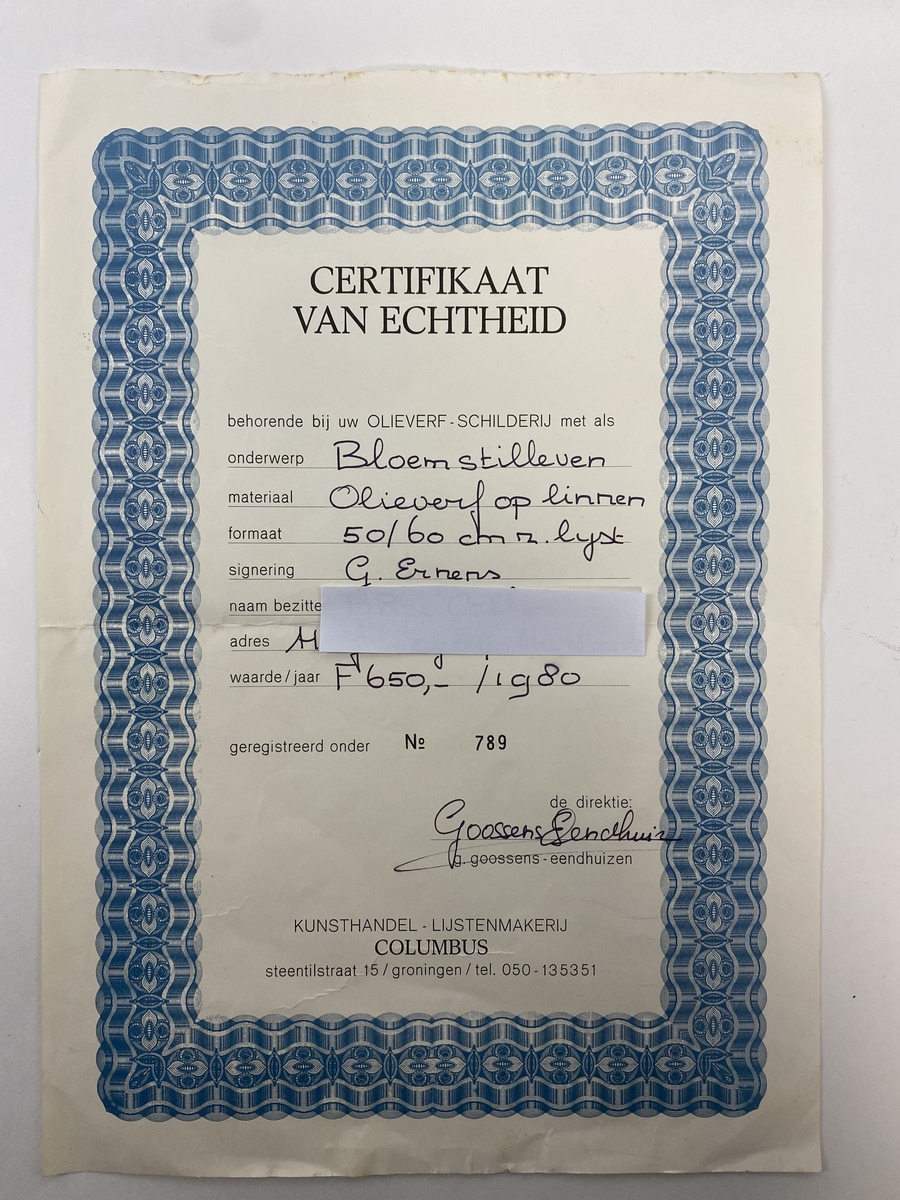 CERTIFIKAAT
VAN ECHTHEID
behorende bij uw OLIEVERF-SCHILDERIJ met als
onderwerp Bloemstilleven
materiaal Olieverf op linnen
formaat 50/60 cm z. lyst
signering G. Ernens
naam bezitte
adres
waarde/jaar F 650,- /1980
geregistreerd onder № 789
de direktie:
Goossens Eendhuiz
g. goossens-eendhuizen
KUNSTHANDEL - LIJSTENMAKERIJ
COLUMBUS
steentilstraat 15 / groningen / tel. 050-135351